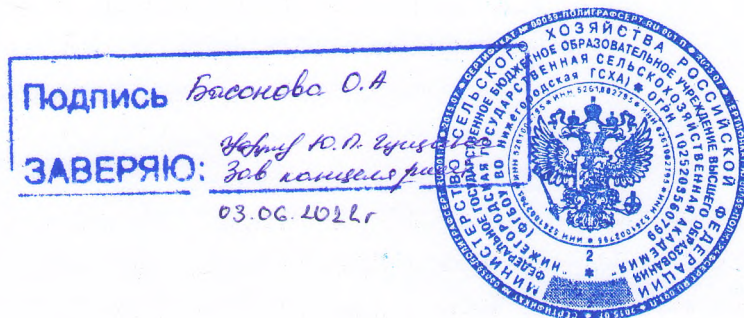 Подпись Басонова О.А
Ю.П.
ЗАВЕРЯЮ: Зав канцелярией
03.06.2022г
МИНИСТЕРСТВО СЕЛЬСКОГО ХОЗЯЙСТВА РОССИЙСКОЙ ФЕДЕРАЦИИ
ФЕДЕРАЛЬНОЕ ГОСУДАРСТВЕННОЕ БЮДЖЕТНОЕ ОБРАЗОВАТЕЛЬНОЕ УЧРЕЖДЕНИЕ ВЫСШЕГО ОБРАЗОВАНИЯ
"НИЖЕГОРОДСКАЯ ГОСУДАРСТВЕННАЯ СЕЛЬСКОХОЗЯЙСТВЕННАЯ АКАДЕМИЯ"
(ФГБОУ ВО Нижегородская ГСХА) * ОГРН 1025203560799
2